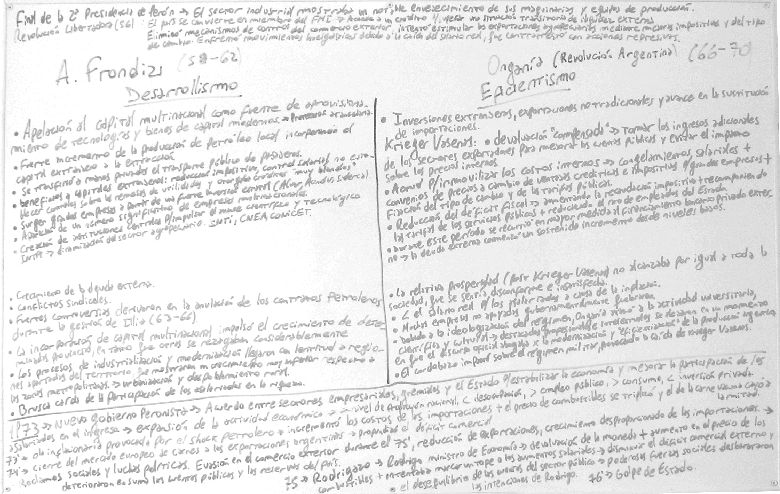 Final de la 2ª Presidencia de Perón → El sector industrial mostraba un notable envejecimiento de sus maquinarias y equipos de producción.
Revolución Libertadora (56) El país se convierte en miembro del FMI → Accede a un crédito p/ una situación transitoria de iliquidez externa.
Eliminó mecanismos de control del comercio exterior, intentó estimular las exportaciones agropecuarias mediante mejoras impositivas y del tipo
de cambio. Enfrentó movimientos huelguísticos debido a la caída del salario real, que contrarrestó con acciones represivas.
A. Frondizi (58-62)
Desarrollismo
• Apelación al capital multinacional como fuente de aprovisiona-
miento de tecnologías y bienes de capital modernos
• Fuerte incremento de la producción de petróleo local incorporando el
capital extranjero a la extracción
• Se traspasó a manos privadas el transporte público de pasajeros.
• beneficios a capitales extranjeros: reducción impositiva, control salarial, no esta-
blecer controles sobre las remesas de utilidades y orígenes crediticios "muy blandos"
• Surgen grandes empresas a partir de un fuerte impulso estatal
• Aparición de un número significativo de empresas multinacionales
• Creación de instituciones centrales p/impulsar el avance científico y tecnológico
INTA → dinamizador del sector agropecuario. INTI, CNEA, CONICET.
• Crecimiento de la deuda externa.
• Conflictos sindicales.
• Fuertes controversias derivaron en la anulación de los contratos Petroleros
durante la gestión de Illia (63-66)
• La incorporación de capital multinacional impulsó el crecimiento de deter-
minadas provincias, en tanto que otras se rezagaban considerablemente
• Los procesos de industrialización y modernización llegaron con lentitud a regio-
nes apartadas del territorio, que mostraron un crecimiento muy inferior respecto a
las zonas metropolitanas → urbanización y despoblamiento rural.
• Brusca caída de la participación de los asalariados en la riqueza.
Onganía (Revolución Argentina) (66-70)
Eficientismo
• Inversiones extranjeras, exportaciones no tradicionales y avance en la sustitución
de importaciones.
Krieger Vasena: • devaluación "compensada" → Tomar los ingresos adicionales
de los sectores exportadores para mejorar las cuentas públicas y evitar el impacto
sobre los precios internos.
• Acordó p/inmovilizar los costos internos → congelamientos salariales +
convenios de precios a cambio de ventajas crediticias e impositivas p/grandes empresas +
Fijación del tipo de cambio y de las tarifas públicas.
• Reducción del déficit fiscal → aumentando la recaudación impositiva + recomponiendo
las tarifas de los servicios públicos + reduciendo el nro de empleados del Estado
• durante este período se recurrió en mayor medida al financiamiento bancario privado exter-
no → la deuda externa comenzó un sostenido incremento desde niveles bajos.
• La relativa prosperidad (post Krieger Vasena) no alcanzaba por igual a toda la
sociedad, que se sentía disconforme e insatisfecha.
• < el salario real p/ los asalariados a causa de la inflación.
• Muchas empresas no apoyadas gubernamentalmente quebraron
• debido a la ideologización del régimen, Onganía atacó a la actividad universitaria,
científica y cultural → destacados profesionales e intelectuales se alejaron en un momento
en que el discurso oficial apuntaba a la modernización y "eficientización" de la producción argentina
• El cordobazo impactó sobre el régimen militar, provocando la caída de Krieger Vasena.
1973 → Nuevo gobierno Peronista → Acuerdo entre sectores empresariales, gremiales y el Estado p/estabilizar la economía y mejorar la participación de los
asalariados en el ingreso → expansión de la actividad económica → > nivel de producción nacional, < desocupación, > empleo público, > consumo, < inversión privada.
73' → ola inflacionaria provocada por el shock petrolero → incrementó los costos de las importaciones + el precio de combustibles se triplicó y el de la carne vacuna cayó a
la mitad.
73' → cierre del mercado europeo de carnes a las exportaciones argentinas → profundizó el déficit comercial
Reclamos sociales y luchas políticas. Evasión en el comercio exterior durante el 75', reducción de exportaciones, crecimiento desproporcionado de las importaciones. →
deterioraron en suma las cuentas públicas y las reservas del país.
75 → Rodrigazo → Rodrigo ministro de Economía → devaluación de la moneda + aumento en el precio de los
combustibles + intentaba marcar un tope a los aumentos salariales → disminuir el déficit comercial externo y
el desequilibrio de las cuentas del sector público → poderosas fuerzas sociales desbarataron
las intenciones de Rodrigo. 76 → Golpe de Estado.